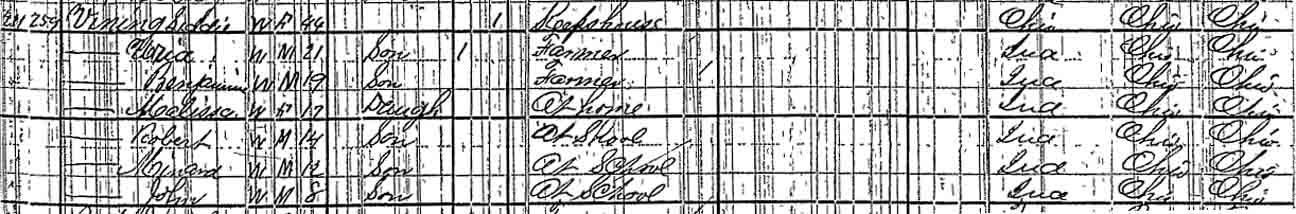 259 Vining W F 44 1 Keeps house Ohio Ohio Ohio
— Uria W M 21 Son 1 Farmer Ind Ohio Ohio
— Benjamin W M 19 Son Farmer Ind Ohio Ohio
— Malissa W F 17 Daugh At home Ind Ohio Ohio
— Robert W M 14 Son At School Ind Ohio Ohio
— W M 12 Son At School Ind Ohio Ohio
— John W M 8 Son At School Ind Ohio Ohio